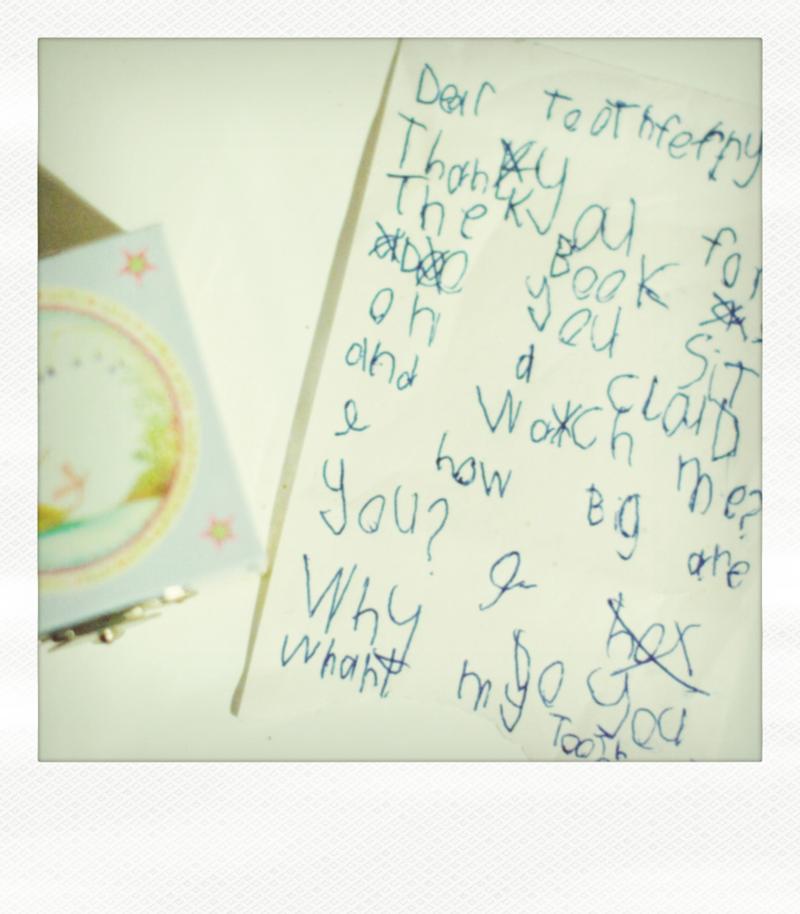 Dear Toothferny
Thank you for
The Book
Do you Sit
on a cLouD
and watch me?
e how Big are
you?
Why Do you
whant my Tooth